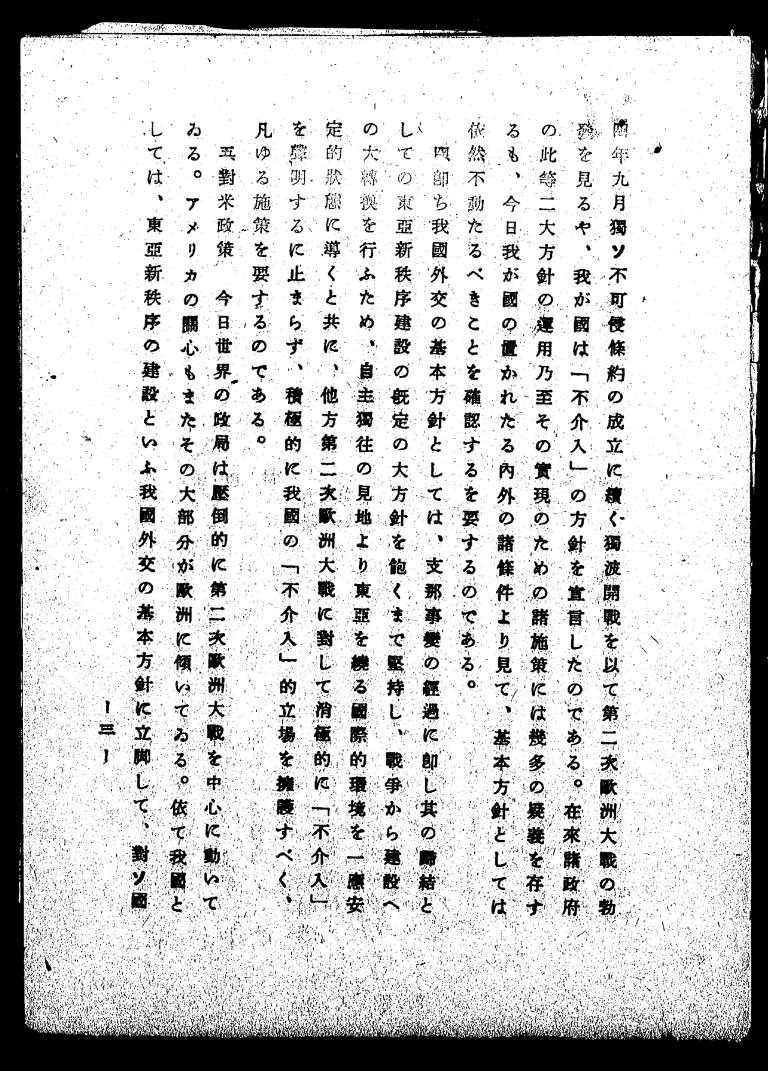 四年九月獨ソ不可侵條約の成立に續く獨波開戰を以て第二次歐洲大戰の勃
發を見るや、我が國は「不介入」の方針を宣言したのである。在來諸政府
の此等二大方針の運用乃至その實現のための諸施策には幾多の疑義を存す
るも、今日我が國の置かれたる內外の諸條件より見て、基本方針としては
依然不動たるべきことを確認するを要するのである。
四卽ち我國外交の基本方針としては、支那事變の經過に卽し其の歸結と
しての東亞新秩序建設の旣定の大方針を飽くまで堅持し、戰爭から建設へ
の大轉換を行ふため、自主獨往の見地より東亞を繞る國際的環境を一應安
定的狀態に導くと共に、他方第二次歐洲大戰に對して消極的に「不介入」
を聲明するに止まらず、積極的に我國の「不介入」的立場を擁護すべく、
凡ゆる施策を要するのである。
五對米政策 今日世界の政局は壓倒的に第二次歐洲大戰を中心に動いて
ゐる。アメリカの關心もまたその大部分が歐洲に傾いてゐる。依て我國と
しては、東亞新秩序の建設といふ我國外交の基本方針に立脚して、對ソ國
—三—